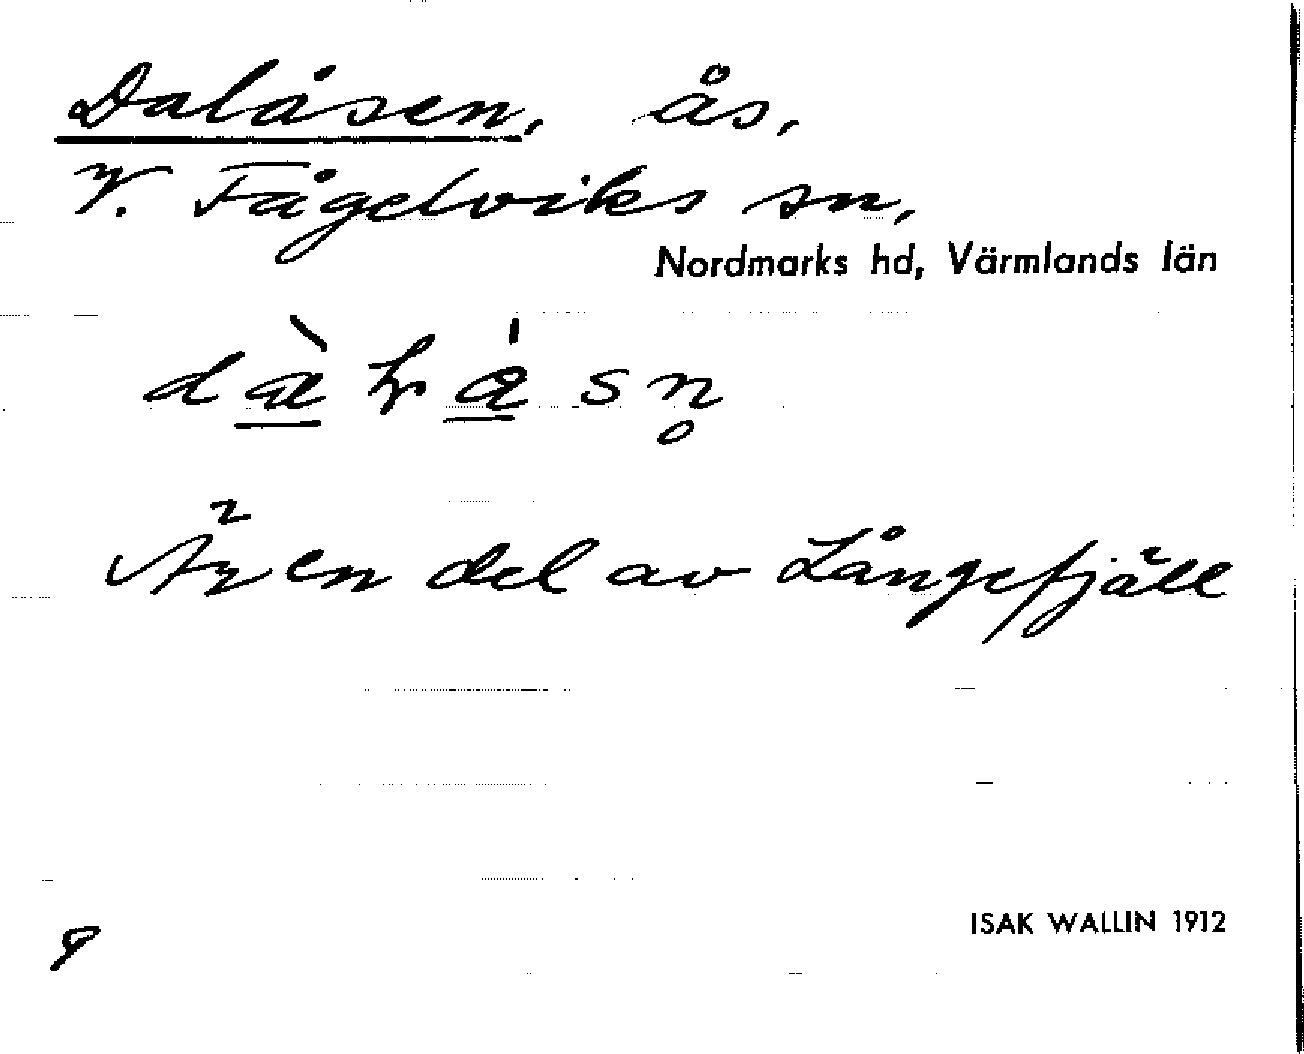 Dalåsen, ås,
V. Fågelviks sn,
Nordmarks hd, Värmlands län
Är en del av Långefjäll
ISAK WALLIN 1912